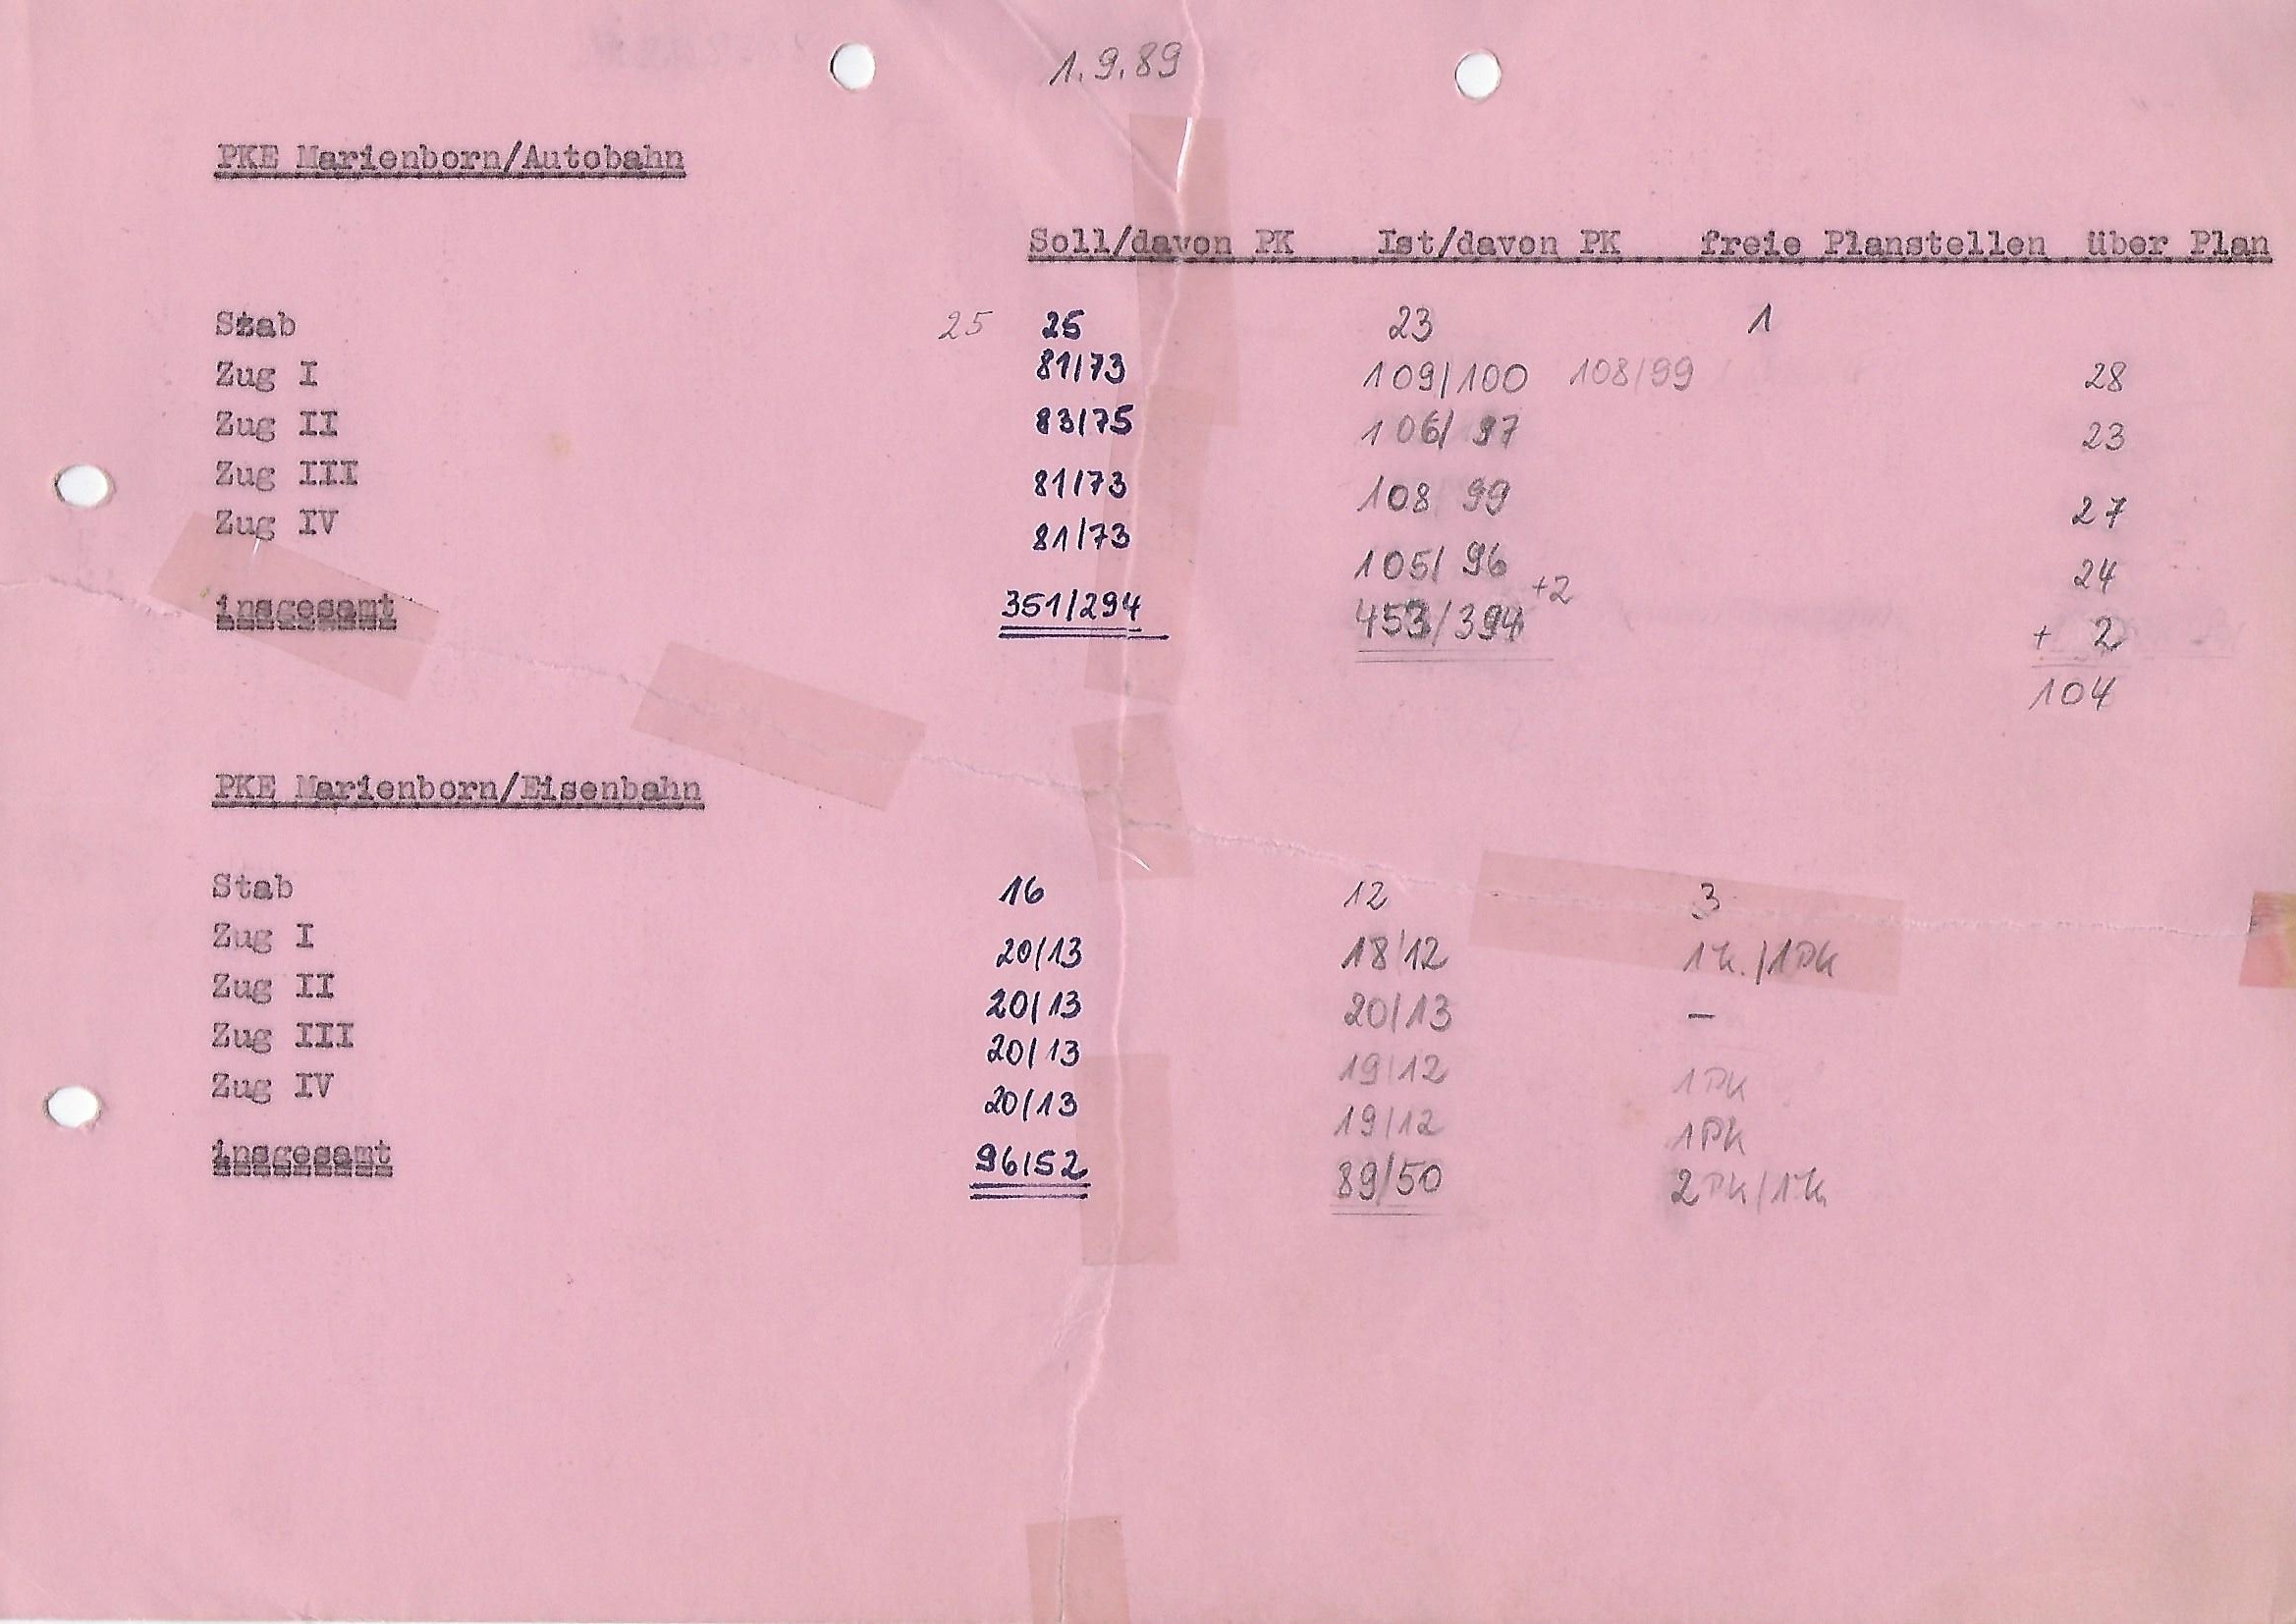 1.9.89
PKE Marienborn/Autobahn
Soll/davon PK Ist/davon PK freie Planstellen über Plan
Stab 25 25 23 1
Zug I 81/73 109/100 108/99 28
Zug II 83/75 106/97 23
Zug III 81/73 108 99 27
Zug IV 81/73 105/96 24
insgesamt 351/294 453/394 +2 + 2
104
PKE Marienborn/Eisenbahn
Stab 16 12 3
Zug I 20/13 18/12 1K./1PK
Zug II 20/13 20/13 –
Zug III 20/13 19/12 1PK
Zug IV 20/13 19/12 1PK
insgesamt 96/52 89/50 2PK/1K